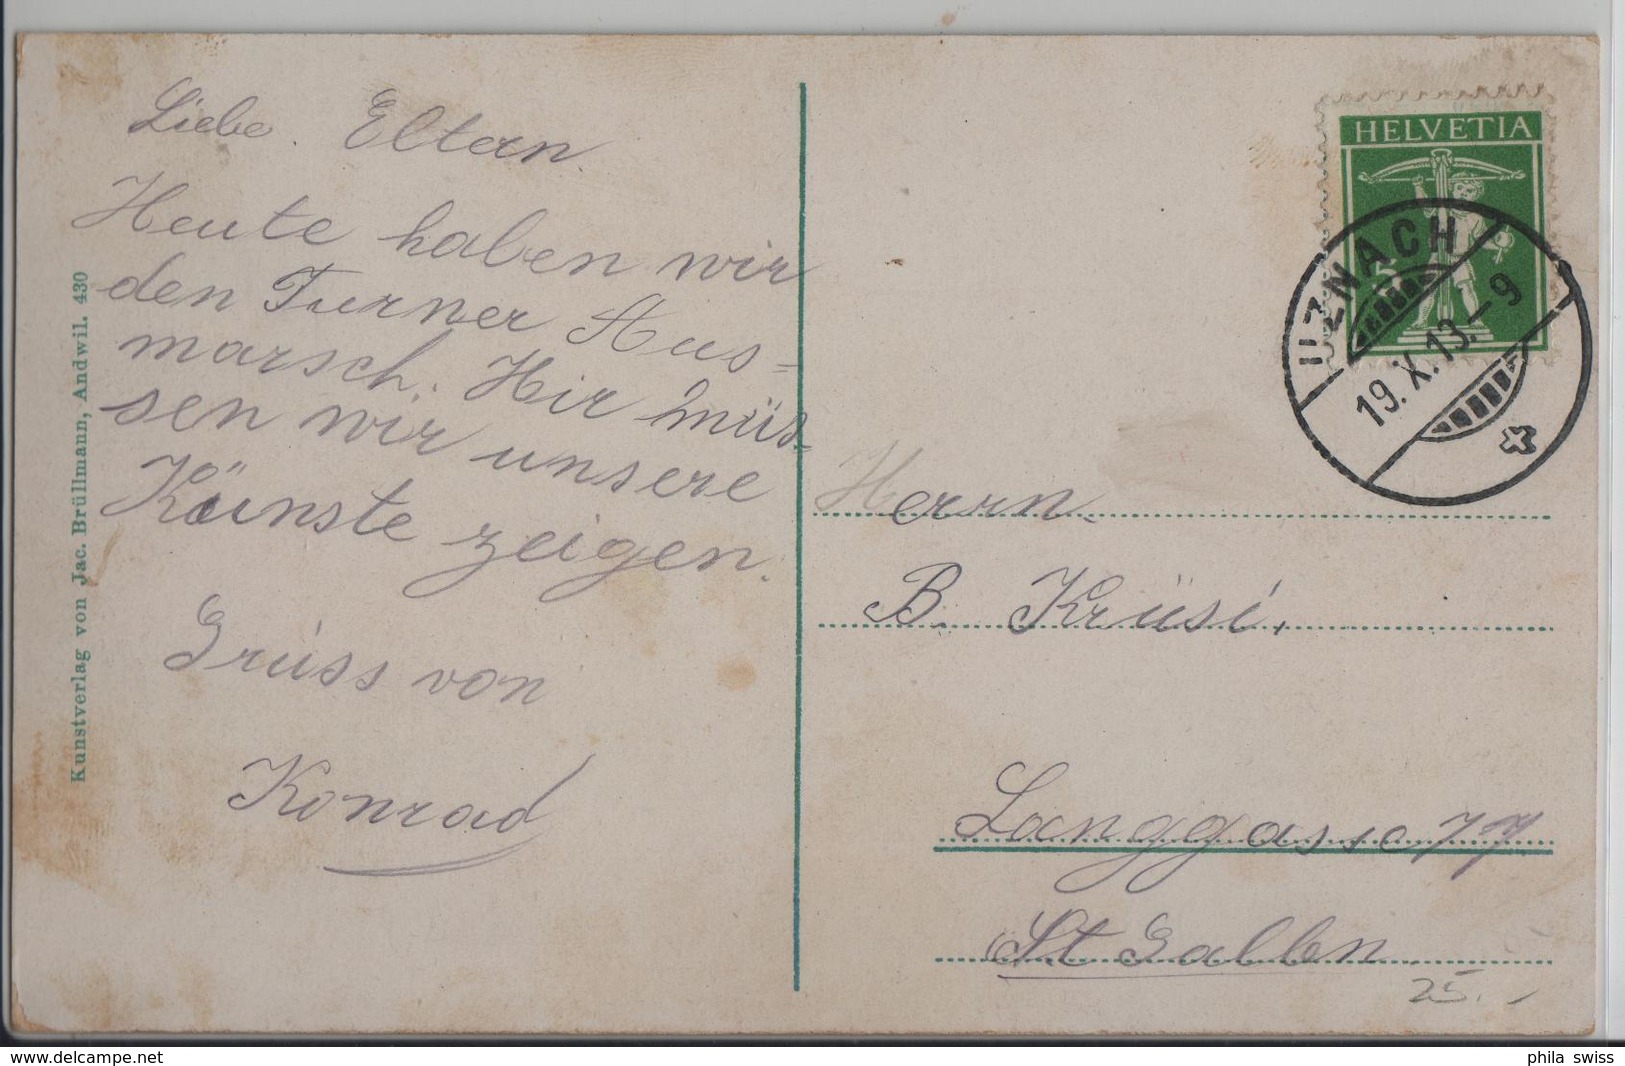 Liebe Eltern.
Heute haben wir
den Turner Aus-
marsch. Hir müs-
sen wir unsere
Künste zeigen.
Gruss von
Konrad
Kunstverlag von Jac. Brüllmann, Andwil. 430
HELVETIA
5
UZNACH
19.X.13.-9
Herrn.
B. Krüsi,
Langgasse 77
St Gallen.
25.-
www.delcampe.net
phila_swiss